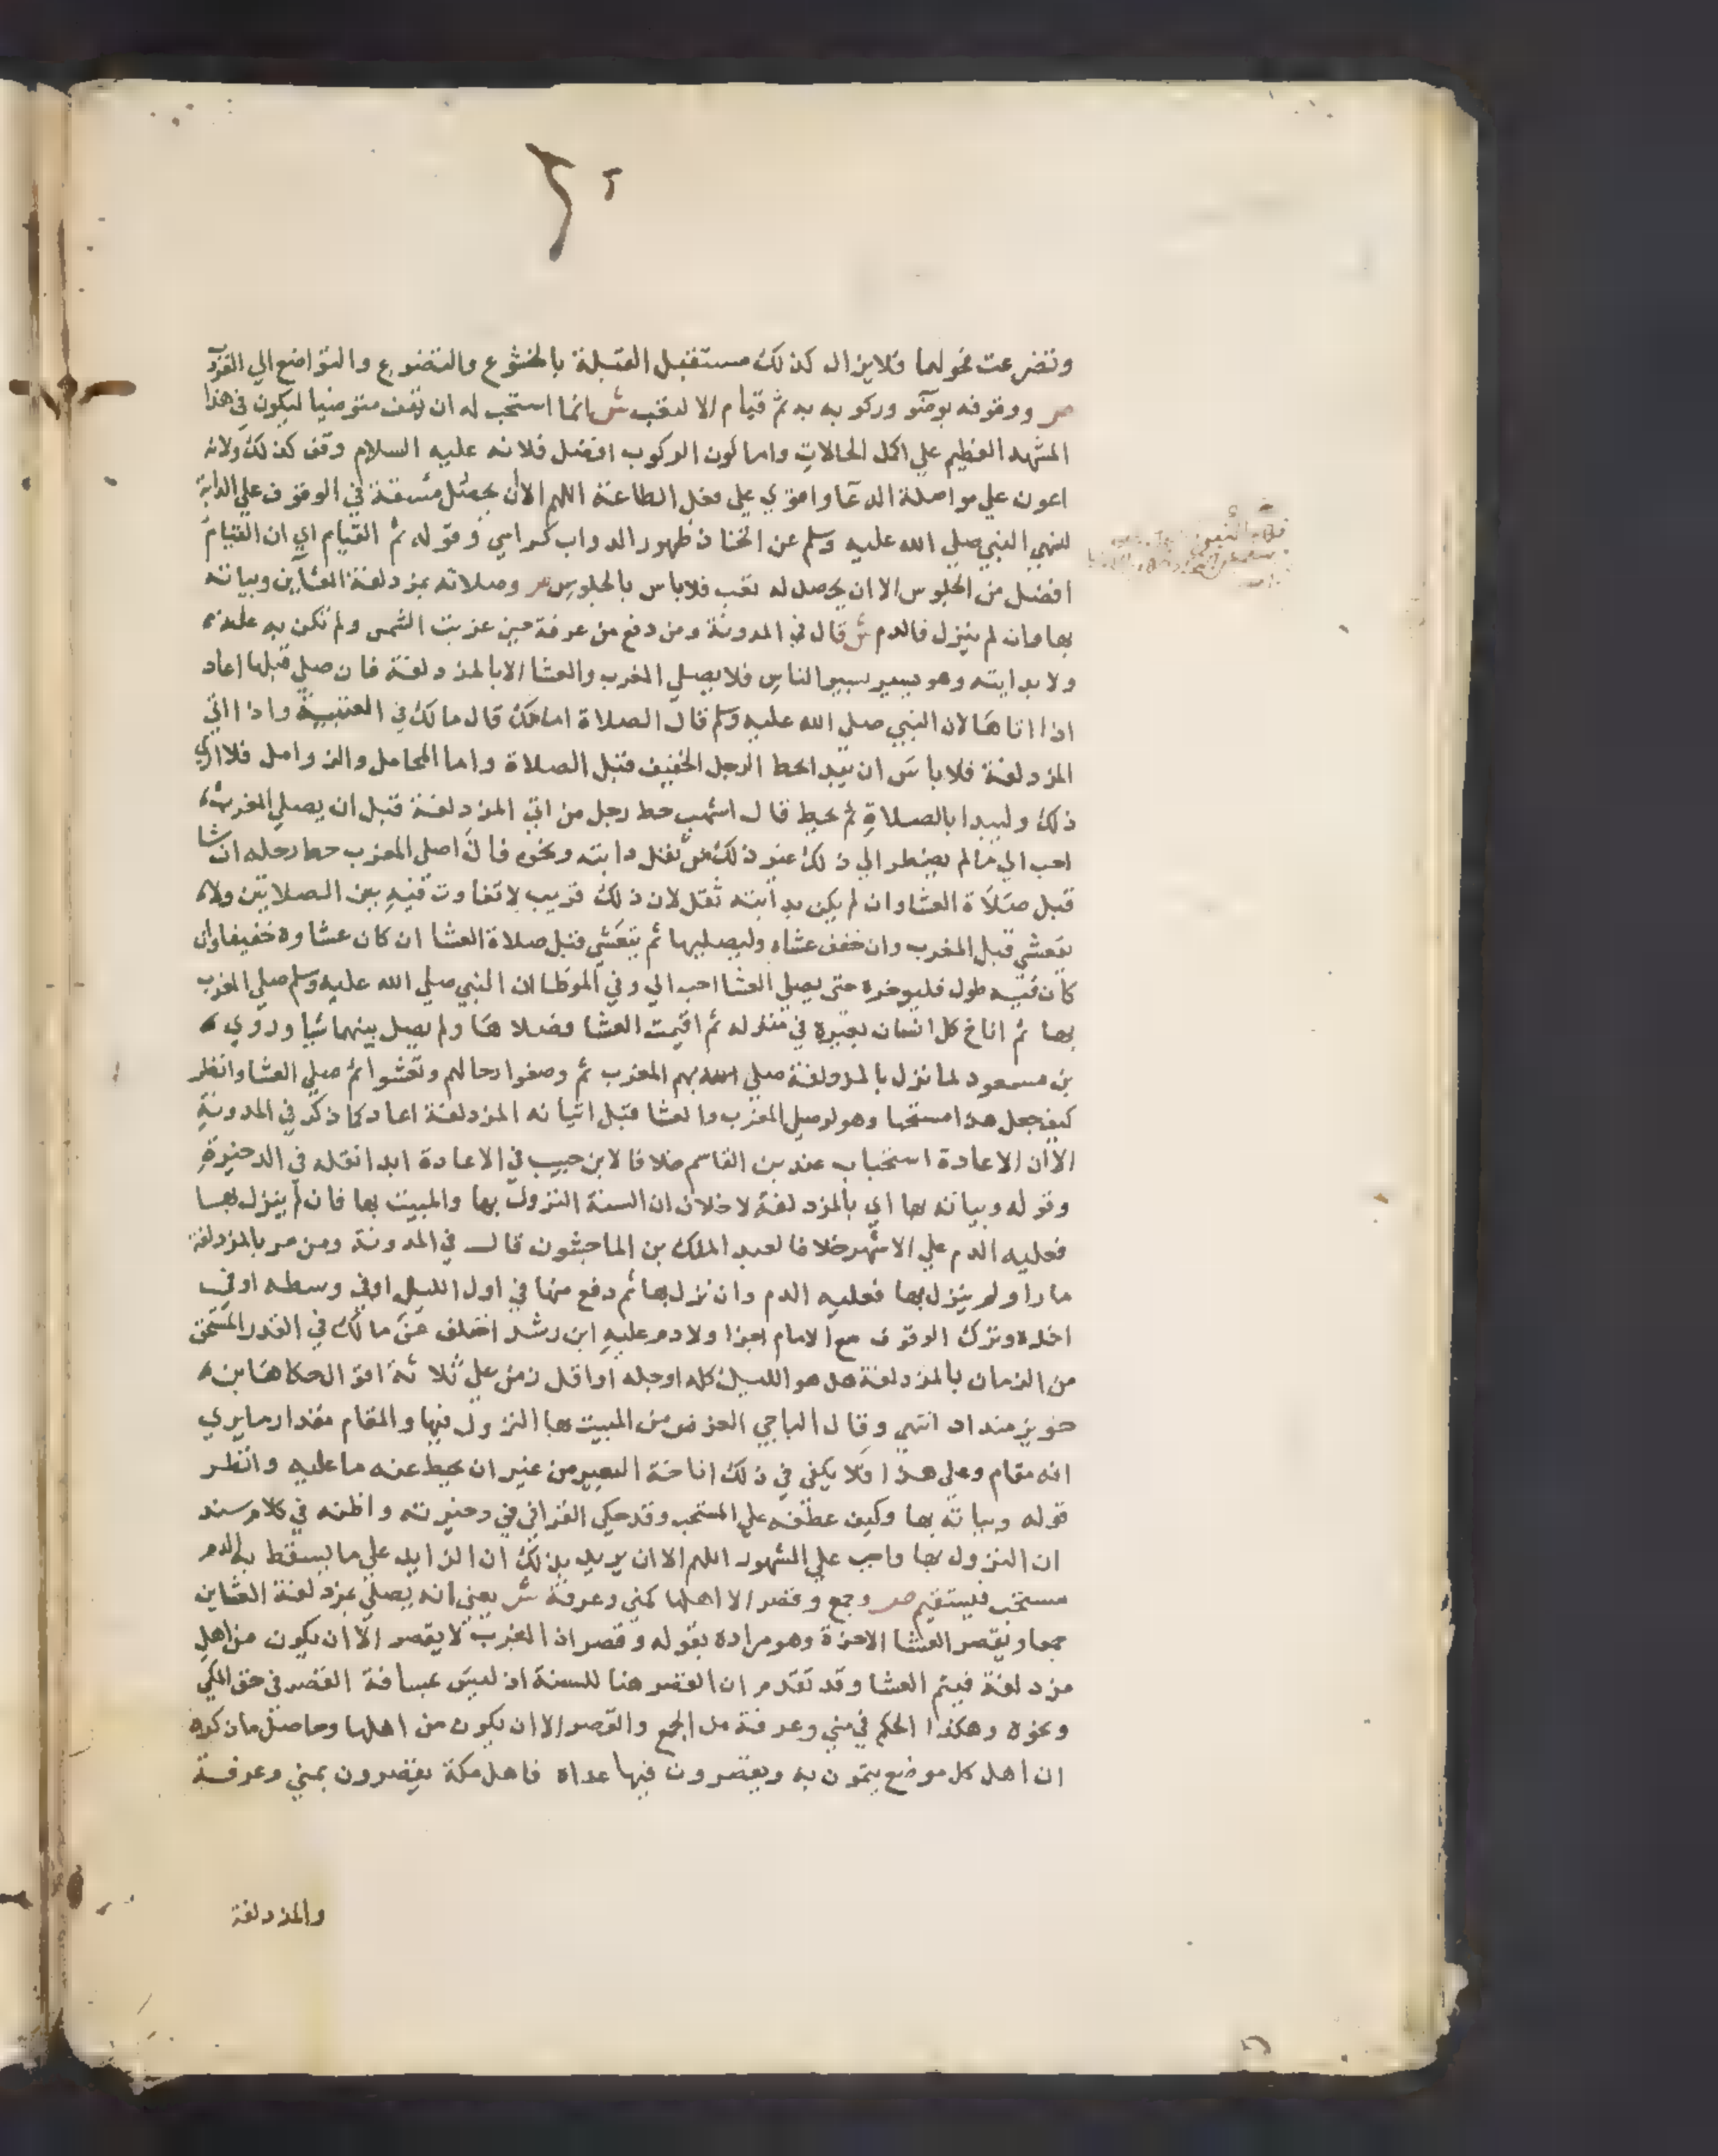 وتضرعت نحولها فلا يزال كذلك مستقبل القبلة بالخشوع والتضرع والتواضع الي
صر ووقوفه بوضو وركوبه به ثم قيام الا لتعب ش انما استحب له ان يقف متوضيا ليكون في هذا
المشهد العظيم علي اكمل الحالات واما كون الركوب افضل فلانه عليه السلام وقف كذلك ولانه
اعون علي مواصلة الدعا واقوي علي فعل الطاعة اللهم الا ان يحصل مشقة في الوقوف علي الدابة
لنهي النبي صلي الله عليه وسلم عن اتخاذ ظهور الدواب كراسي وقوله ثم القيام اي ان القيام
افضل من الجلوس الا ان يحصل له تعب فلا باس بالجلوس صر وصلاته بمزدلفة العشاين وبياته
بها وان لم ينزل فالدم ش قال في المدونة ومن دفع من عرفة حين غربت الشمس ولم تكن به علة
ولا بدابته وهو يسير بسير الناس فلا يصلي المغرب والعشا الا بالمزدلفة فان صلي قبلها اعاد
اذا اتاها لان النبي صلي الله عليه وسلم قال الصلاة امامك قال مالك في العتبية واذا اتي
المزدلفة فلا باس ان يبدا بحط الرحل الخفيف قبل الصلاة واما المحامل والزوامل فلا اري
ذلك وليبدا بالصلاة ثم يحط قال اشهب حط رحل من اتي المزدلفة قبل ان يصلي المغرب
احب الي ما لم يضطر الي ذلك غير ذلك من ثقل دابته ونحوه قال اصلي المغرب حط رحله ان شا
قبل صلاة العشا وان لم يكن بدابته ثقل لان ذلك قريب لا تفاوت فيه بين الصلاتين ولا
يتعشي قبل المغرب وان خفف عشاه وليصليها ثم يتعشي قبل صلاة العشا ان كان عشاوه خفيفا وان
كان فيه طول فليوخره حتي يصلي العشا احب الي وفي الموطا ان النبي صلي الله عليه وسلم صلي المغرب
بها ثم اناخ كل انسان بعيره في منزله ثم اقيمت العشا فصلاها ولم يصل بينهما شيا وروي
بن مسعود لما نزل بالمزدلفة صلي الله بهم المغرب ثم وضعوا رحالهم وتعشوا ثم صلي العشا وانظر
كيف جعل هذا مستحبا وهو لو صلي المغرب والعشا قبل اتيانه المزدلفة اعاد كما ذكر في المدونة
الا ان الاعادة استحباب عند بن القاسم خلافا لابن حبيب في الاعادة ابدا نقله في الدخيرة
وقوله وبياته بها اي بالمزدلفة لا خلاف ان السنة النزول بها والمبيت بها فان لم ينزل بها
فعليه الدم علي الاشهر خلافا لعبد الملك بن الماجشون قال في المدونة ومن مر بالمزدلفة
مارا ولم ينزل بها فعليه الدم وان نزل بها ثم دفع منها في اول الليل او في وسطه او في
اخره وترك الوقوف مع الامام اجزا ولا دم عليه ابن رشد اختلف عن مالك في القدر المستحق
من الزمان بالمزدلفة هل هو الليل كله او جله او اقل زمن علي ثلاثة اقوال حكاها بن
خويزمنداد انتهي وقال الباجي الغرض من المبيت بها النزول فيها والمقام مقدار ما يري
انه مقام وعلي هذا فلا يكفي في ذلك اناخة البعير من غير ان يحط عنه ما عليه وانظر
قوله وبياته بها وكيف عطفه علي المستحب وقد حكي القرافي في دخيرته واظنه في كلام سند
ان النزول بها واجب علي المشهور اللهم الا ان يريد بذلك ان الزايد علي ما يسقط به الدم
مستحب فيستقيم صر وجمع وقصر الا اهلها كمني وعرفة ش يعني انه يصلي بمزدلفة العشاين
جمعا ويقصر العشا الاخرة وهو مراده بقوله وقصر اذ المغرب لا يقصر الا ان يكون من اهل
مزدلفة فيتم العشا وقد تقدم ان القصر هنا للسنة اذ ليس بمسافة القصر في حق المكي
ونحوه وهكذا الحكم في مني وعرفة من الجمع والقصر الا ان يكون من اهلها وحاصل ما ذكروه
ان اهل كل موضع يتمون به ويقصرون فيما عداه فاهل مكة يقصرون بمني وعرفة
والمزدلفة